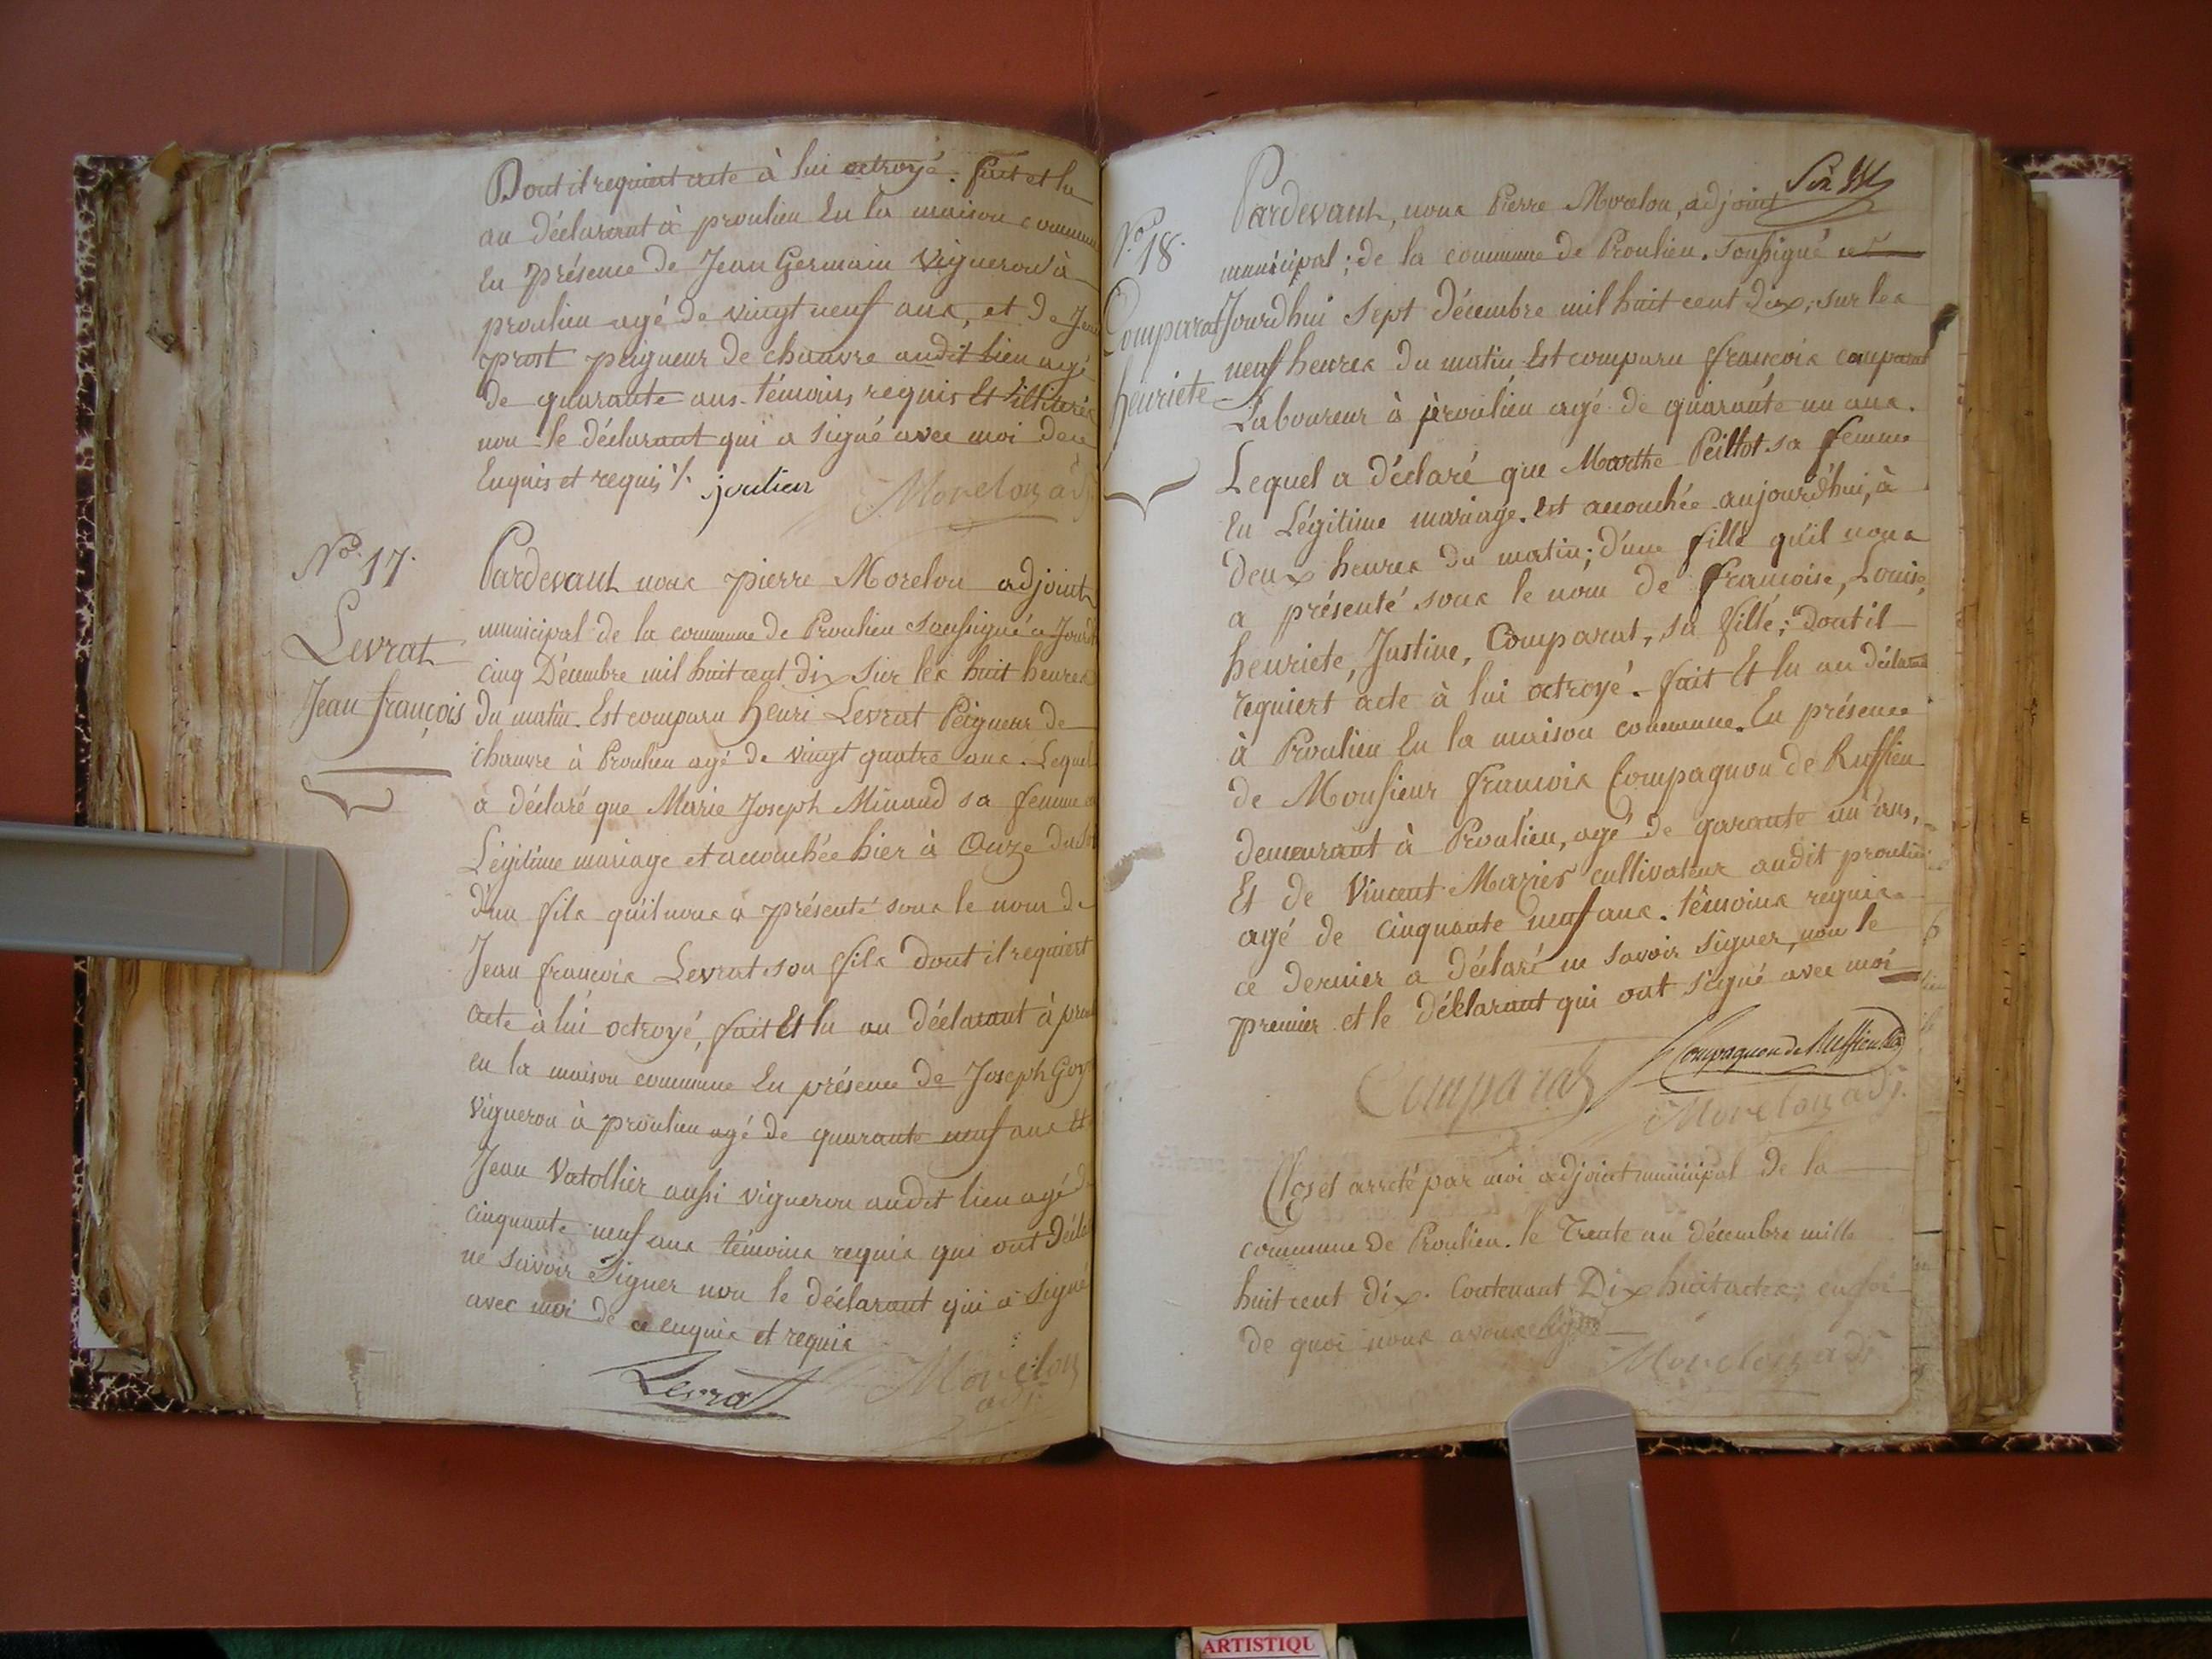 Dont il requiert acte à lui octroyé. fait et lu
au déclarant à proulieu En la maison commune
En présence de Jean Germain Vigneron à
proulieu agé de vingt neuf ans, et de Jean
prost peigneur de chanvre audit lieu agé
de quarante ans. témoins requis Et illiterés
non le déclarant qui a signé avec moi de ce
Enquis et requis ‰. joulien
Morelon adj.
No. 17.
Levrat
Jean françois
Pardevant nous pierre Morelon adjoint
municipal de la commune de Proulieu soussigné a Jourd
cinq Décembre mil huit cent dix sur les huit heures
du matin. Est comparu henri Levrat Peigneur de
chanvre à Proulieu agé de vingt quatre ans. Lequel
a déclaré que Marie Joseph Minaud sa femme en
Légitime mariage et accouchée hier à Onze du
d'un fils qu'il nous a présenté sous le nom de
Jean francois Levrat son fils dont il requiert
acte à lui octroyé, fait Et lu au déclarant à prou
en la maison commune En présence de Joseph
Vigneron à proulieu agé de quarante neuf ans Et
Jean Vatollier aussi vigneron audit lieu agé de
cinquante neuf ans témoins requis qui ont Décla
ne savoir Signer non le déclarant qui a signé
avec moi de ce enquis et requis
Levrat
Morelon
adj.
No. 18.
Comparat
henriete
Pardevant, nous Pierre Morelon, adjoint
municipal; de la commune de Proulieu. soussigné
Jourd'hui sept décembre mil huit cent dix; sur les
neuf heures du matin Est comparu françois comparat
Laboureur à proulieu agé de quarante un ans.
Lequel a déclaré que Marthe Peillot sa femme
En Légitime mariage. est accouchée aujourd'hui, à
deux heures du matin; d'une fille qu'il nous
a présenté sous le nom de francoise, Louise,
henriete, Justine, Comparat, sa fille; dont il
requiert acte à lui octroyé. fait Et lu au déclarant
à Proulieu En la maison commune. En présence
de Monsieur francois Compagnon de Ruffieu
demeurant à Proulieu, agé de quarante un ans,
Et de Vincent Mazier cultivateur audit proulieu
agé de cinquante neuf ans. témoins requis.
ce dernier a déclaré ne savoir signer, non le
premier et le déclarant qui ont signé avec moi
Compagnon de Ruffieu
Comparat
Morelon adj.
Clos et arreté par moi adjoint municipal de la
commune de Proulieu. le trente un décembre mille
huit cent dix. Contenant Dix huit actes; en foi
de quoi nous avons signé
Morelon adj.
ARTISTIQU